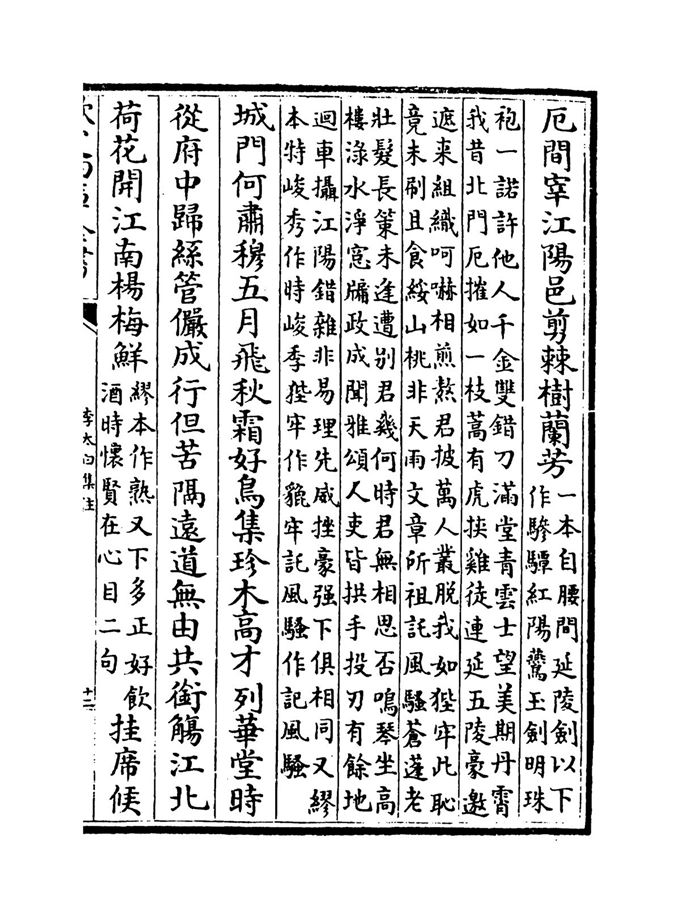 厄間宰江陽邑剪棘樹蘭芳
一本自腰間延陵劍以下
作驂驔紅陽鷰玉劍明珠
袍一諾許他人千金雙錯刀滿堂青雲士望美期丹霄
我昔北門厄摧如一枝蒿有虎挾雞徒連延五陵豪邀
遮来組織呵嚇相煎熬君披萬人叢脫我如狴牢此恥
竟未刷且食綏山桃非天雨文章所祖託風騷蒼蓬老
壯髮長策未逢遭别君幾何時君無相思否鳴琴坐高
樓淥水淨窻牖政成聞雅頌人吏皆拱手投刃有餘地
迴車攝江陽錯雜非易理先威挫豪强下俱相同又繆
本特峻秀作時峻季狴牢作貔牢託風騷作記風騷
城門何肅穆五月飛秋霜好鳥集珍木高才列華堂時
從府中歸絲管儼成行但苦隔遠道無由共銜觴江北
荷花開江南楊梅鮮
繆本作熟又下多正好飲
酒時懷賢在心目二句
挂席候
李太白集注